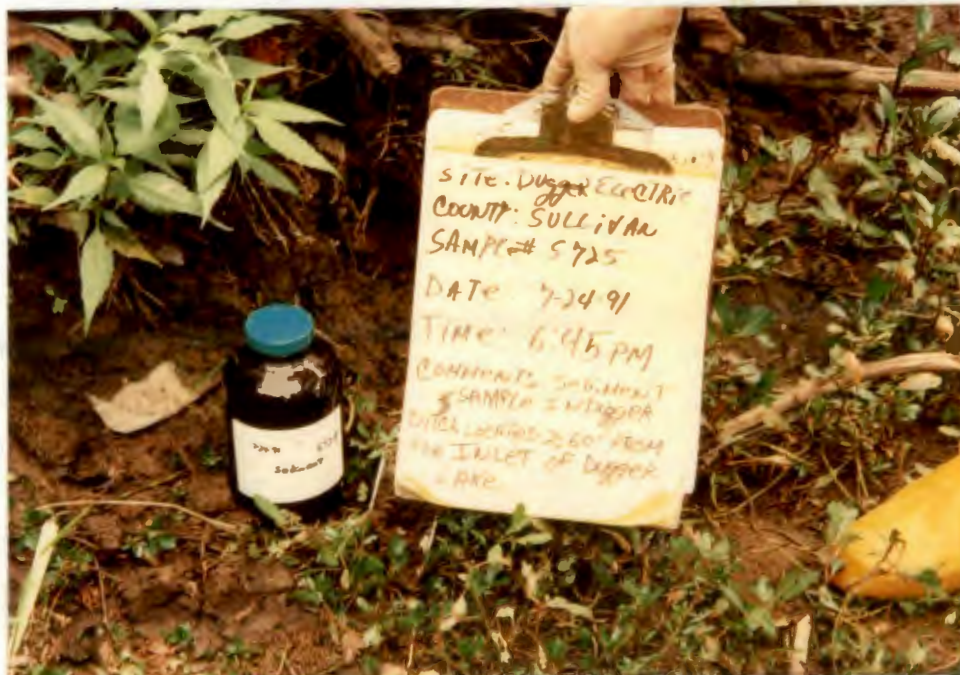 SITE: Dugger ElecTRic
COUNTY: SULLiVAN
SAMPLE# S725
DATE 7-24-91
TIME: 6:45 PM
COMMENTS SEDIMENT
SAMPLE IN
DITCH LOCATED 260' FROM
the INLET of Dugger
LAKE
Sediment